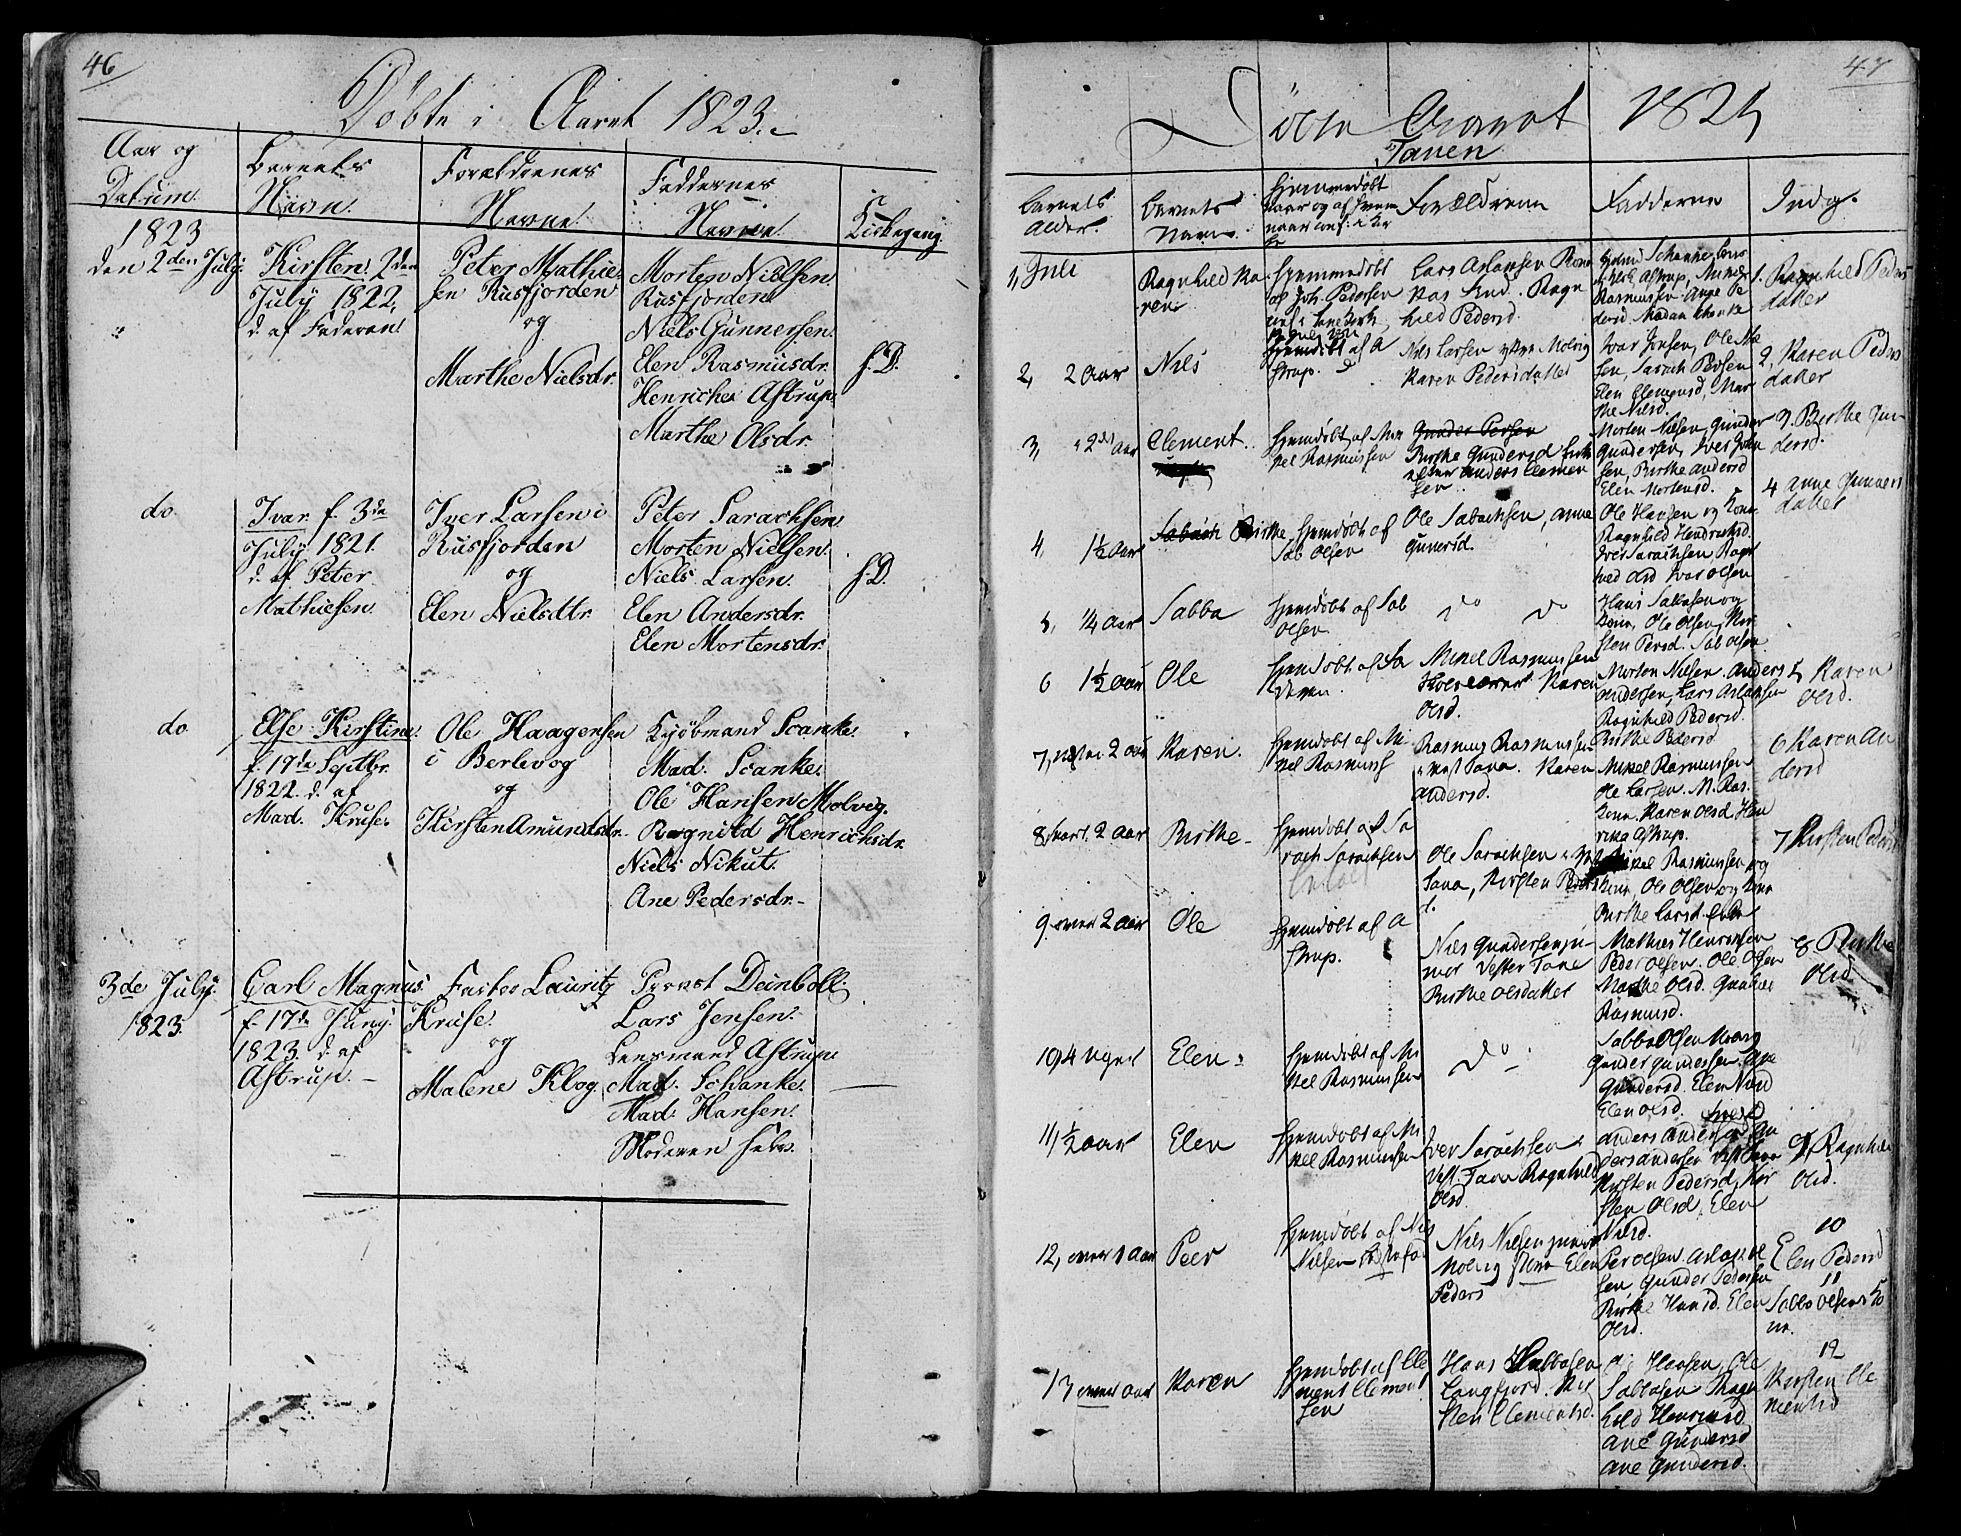 46
Döbte i Aaret 1823.
Aar og
Datum.
Barnets
Navn.
Forældrenes
Navne.
Faddernes
Navne.
Kirkegang.
1823
den 2den July.
Kirsten. 2den
July 1822,
d. af Faderen
Peter Mathie-
sen Rusfjorden
og
Marthe Nielsdr.
Morten Nielsen.
Rusfjorden.
Niels Gunnersen.
Elen Rasmusdr.
Henriche Astrup.
Marthe Olsdr.
h. D.
do.
Ivar f. 3de
July 1821.
d. af Peter
Mathiesen.
Iver Larsen i
Rusfjorden
og
Elen Nielsdtr.
Peter Sarachsen.
Morten Nielsen.
Niels Larsen.
Elen Andersdr.
Elen Mortensdr.
h. D.
do
Else Kirstine.
f. 19de Septbr.
1822. d. af
Mad. Kruse.
Ole Haagensen
i Berlevog
og
Kirsten Amundsdr.
Kjöbmand Scanke.
Mad. Scanke.
Ole Hansen Molvig.
Ragnild Henrichsdr.
Niels Nikut.
Ane Pedersdr.
3de July.
1823.
Carl Magnus
f. 17de Juny.
1823. d. af
Astrup.
Lauritz
Kruse.
og
Malene Klog.
Provst Deinboll.
Lars Jensen.
Lensmand Astrup.
Mad. Schanke.
Mad. Hansen.
Moderen selv.
47
Döbte Aaret 1824
Tanen
Barnets
Alder.
Barnets
Navn.
Hjemmedöbt
naar og af hvem
Forældrene
Fadderne
Indg.
1, Juli
Ragnhild Ka-
ren
Hjemmedöbt
af Joh. Pedersen
Lars Aslaksen
Ragn
hild Pedersd.
Rasmusen Ane Pe
dersd. Madam Schanke
1. Ragnhild Peders
datter
2, 2 Aar
Nils
Hjemdöbt af A
strup.
Nils Larsen Molvig
Karen Pedersdatter
Ivar Jonsen, Ole Ni
sen, Sarach Persen
Elen Clemensd, Mar
the Nilsd.
2, Karen Peders
datter
3, 2det Aar
Clement.
Hjemdöbt af Mi
kel Rasmussen
Gunder Persen
Birthe Gundersd
Anders Clemen
sen
Morten Nilsen, Gunder
Gundersen, Iver John
sen, Birthe Andersd
Elen Mortensd.
3. Birthe Gun-
dersd.
4, 1½ Aar
Sabach Birthe
Hjemdöbt af
Sab Olsen
Ole Sabachsen, Anne
Gunersd.
Ole Hansen og Kone
Ragnhild Hendriksd.
Iver Sarachsen Ragn
hild Ivar Olsen
4 Anne Gunners
datter
5, ¼ Aar
Sabba
Hjemdöbt af Sab
Olsen
do do
Hans Sabbasen og
Kone, Ole Olsen, Kir
sten Persd. Sab Olsen
6 1½ Aar
Ole
Hjemdöbt af Fa
deren.
Mikel Rasmussen
Karen
Olsd.
Morten Nilsen. Anders
Andersen, Lars Aslaksen
Ragnhild Pedersd.
Birthe Pedersd
5 Karen
Olsd.
7, næsten 2 Aar
Karen.
Hjemdöbt af Mi-
kel Rasmuss
Rasmus Rasmussen
i Vest Tana. Karen
Andersd.
Mikel Rasmussen
Ole Larsen. M. Ras.
Kone. Karen Olsd. Hen
rikke Astrup.
6 Karen An
dersd
8 snart 2 Aar
Birthe
Hjemdöbt af Sa
rach Sarachsen
Ole Sarachsen i Vest
Tana, Kirsten Peders
d.
Mikel Rasmussen og
Kone, Ole Olsen og Kone
Birthe Larsd.
7 Kirsten Pedersd
9. over 2 Aar
Ole
Hjemdöbt af A
strup.
Nils Gundersen ju-
nior Vester Tane
Birthe Olsdatter
Mathies Henriksen
Peder Olsen. Ole Olsen
Marthe Olsd. Gunhil
Rasmusd.
8 Birthe
Olsd.
10, 4 uger
Elen
Hjemdöbt af Mi
kel Rasmussen
do
Sabba Olsen
Gunder Gundersen. Ane
Gundersd. Elen
Elen Olsd.
11, ½ Aar
Elen
Hjemdöbt af Mi
kel Rasmussen
Iver Sarachsen
Vest. Tane Ragnhild
Olsd.
Anders Andersen
Kirsten Pedersd, Kir
sten Olsd. Elen
Nilsd.
9, Ragnhild
Olsd.
12, over 1 Aar
Peer
Hjemdöbt af Nils
Nilsen
Nils Nilsen junior
Molvig Elen
Peders
Per Olsen
sen, Gunder Pedersen
Birthe Hansd. Elen
Olsd.
10
Elen Pedersd
11
Sabba Olsens Ko
ne.
13 over Aar
Karen
Hjemdöbt af Cle
ment Clement
sen
Hans Sabbasen
Langfjord. Kir
sten Clementsd.
Hansen, Ole
Sabbasen Ragn
hild Henriksd
Ane Gundersd
Ane Gundersd.
12
Kirsten Cle
mentsd